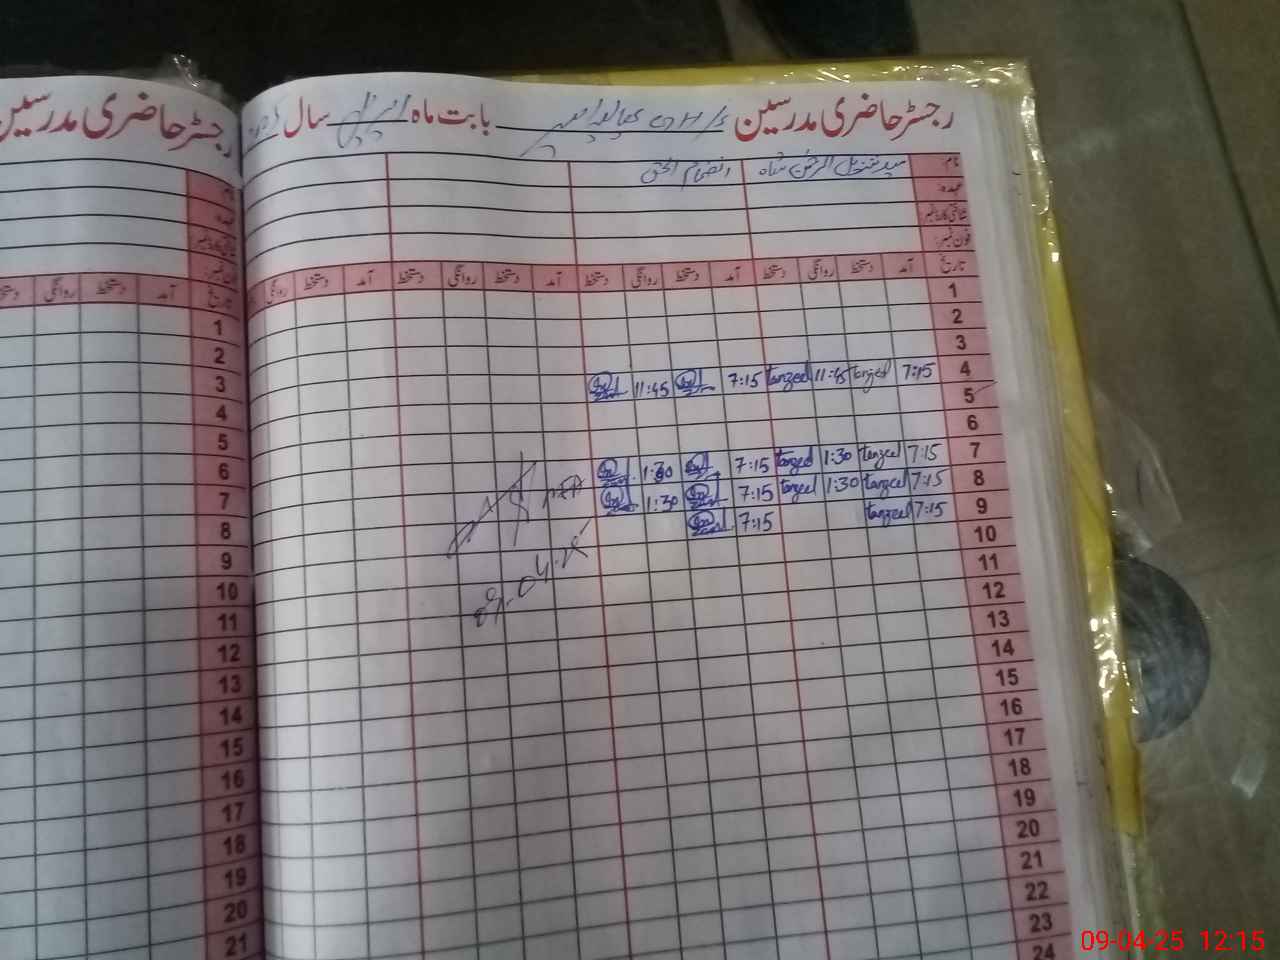 رجسٹر حاضری مدرسین بابت ماہ اپریل سال
نام: سید تنزیل الرحمٰن شاہ انضمام الحق
عہدہ:
شناختی کارڈ نمبر:
فون نمبر:
تاریخ آمد دستخط روانگی دستخط آمد دستخط روانگی دستخط آمد دستخط روانگی دستخط آمد دستخط روانگی
1
2
3
4 7:15 tanzeel 11:45 tanzeel 7:15 11:45
5
6
7 7:15 tanzeel 1:30 tanzeel 7:15 1:30
8 7:15 tanzeel 1:30 tanzeel 7:15 1:30
9 7:15 tanzeel 7:15
10
11
12
13
14
15
16
17
18
19
20
21
22
23
24
رجسٹر حاضری مدرسین
نام:
عہدہ:
شناختی کارڈ نمبر:
فون نمبر:
تاریخ آمد دستخط روانگی دستخط
1
2
3
4
5
6
7
8
9
10
11
12
13
14
15
16
17
18
19
20
21
09-04-25 12:15